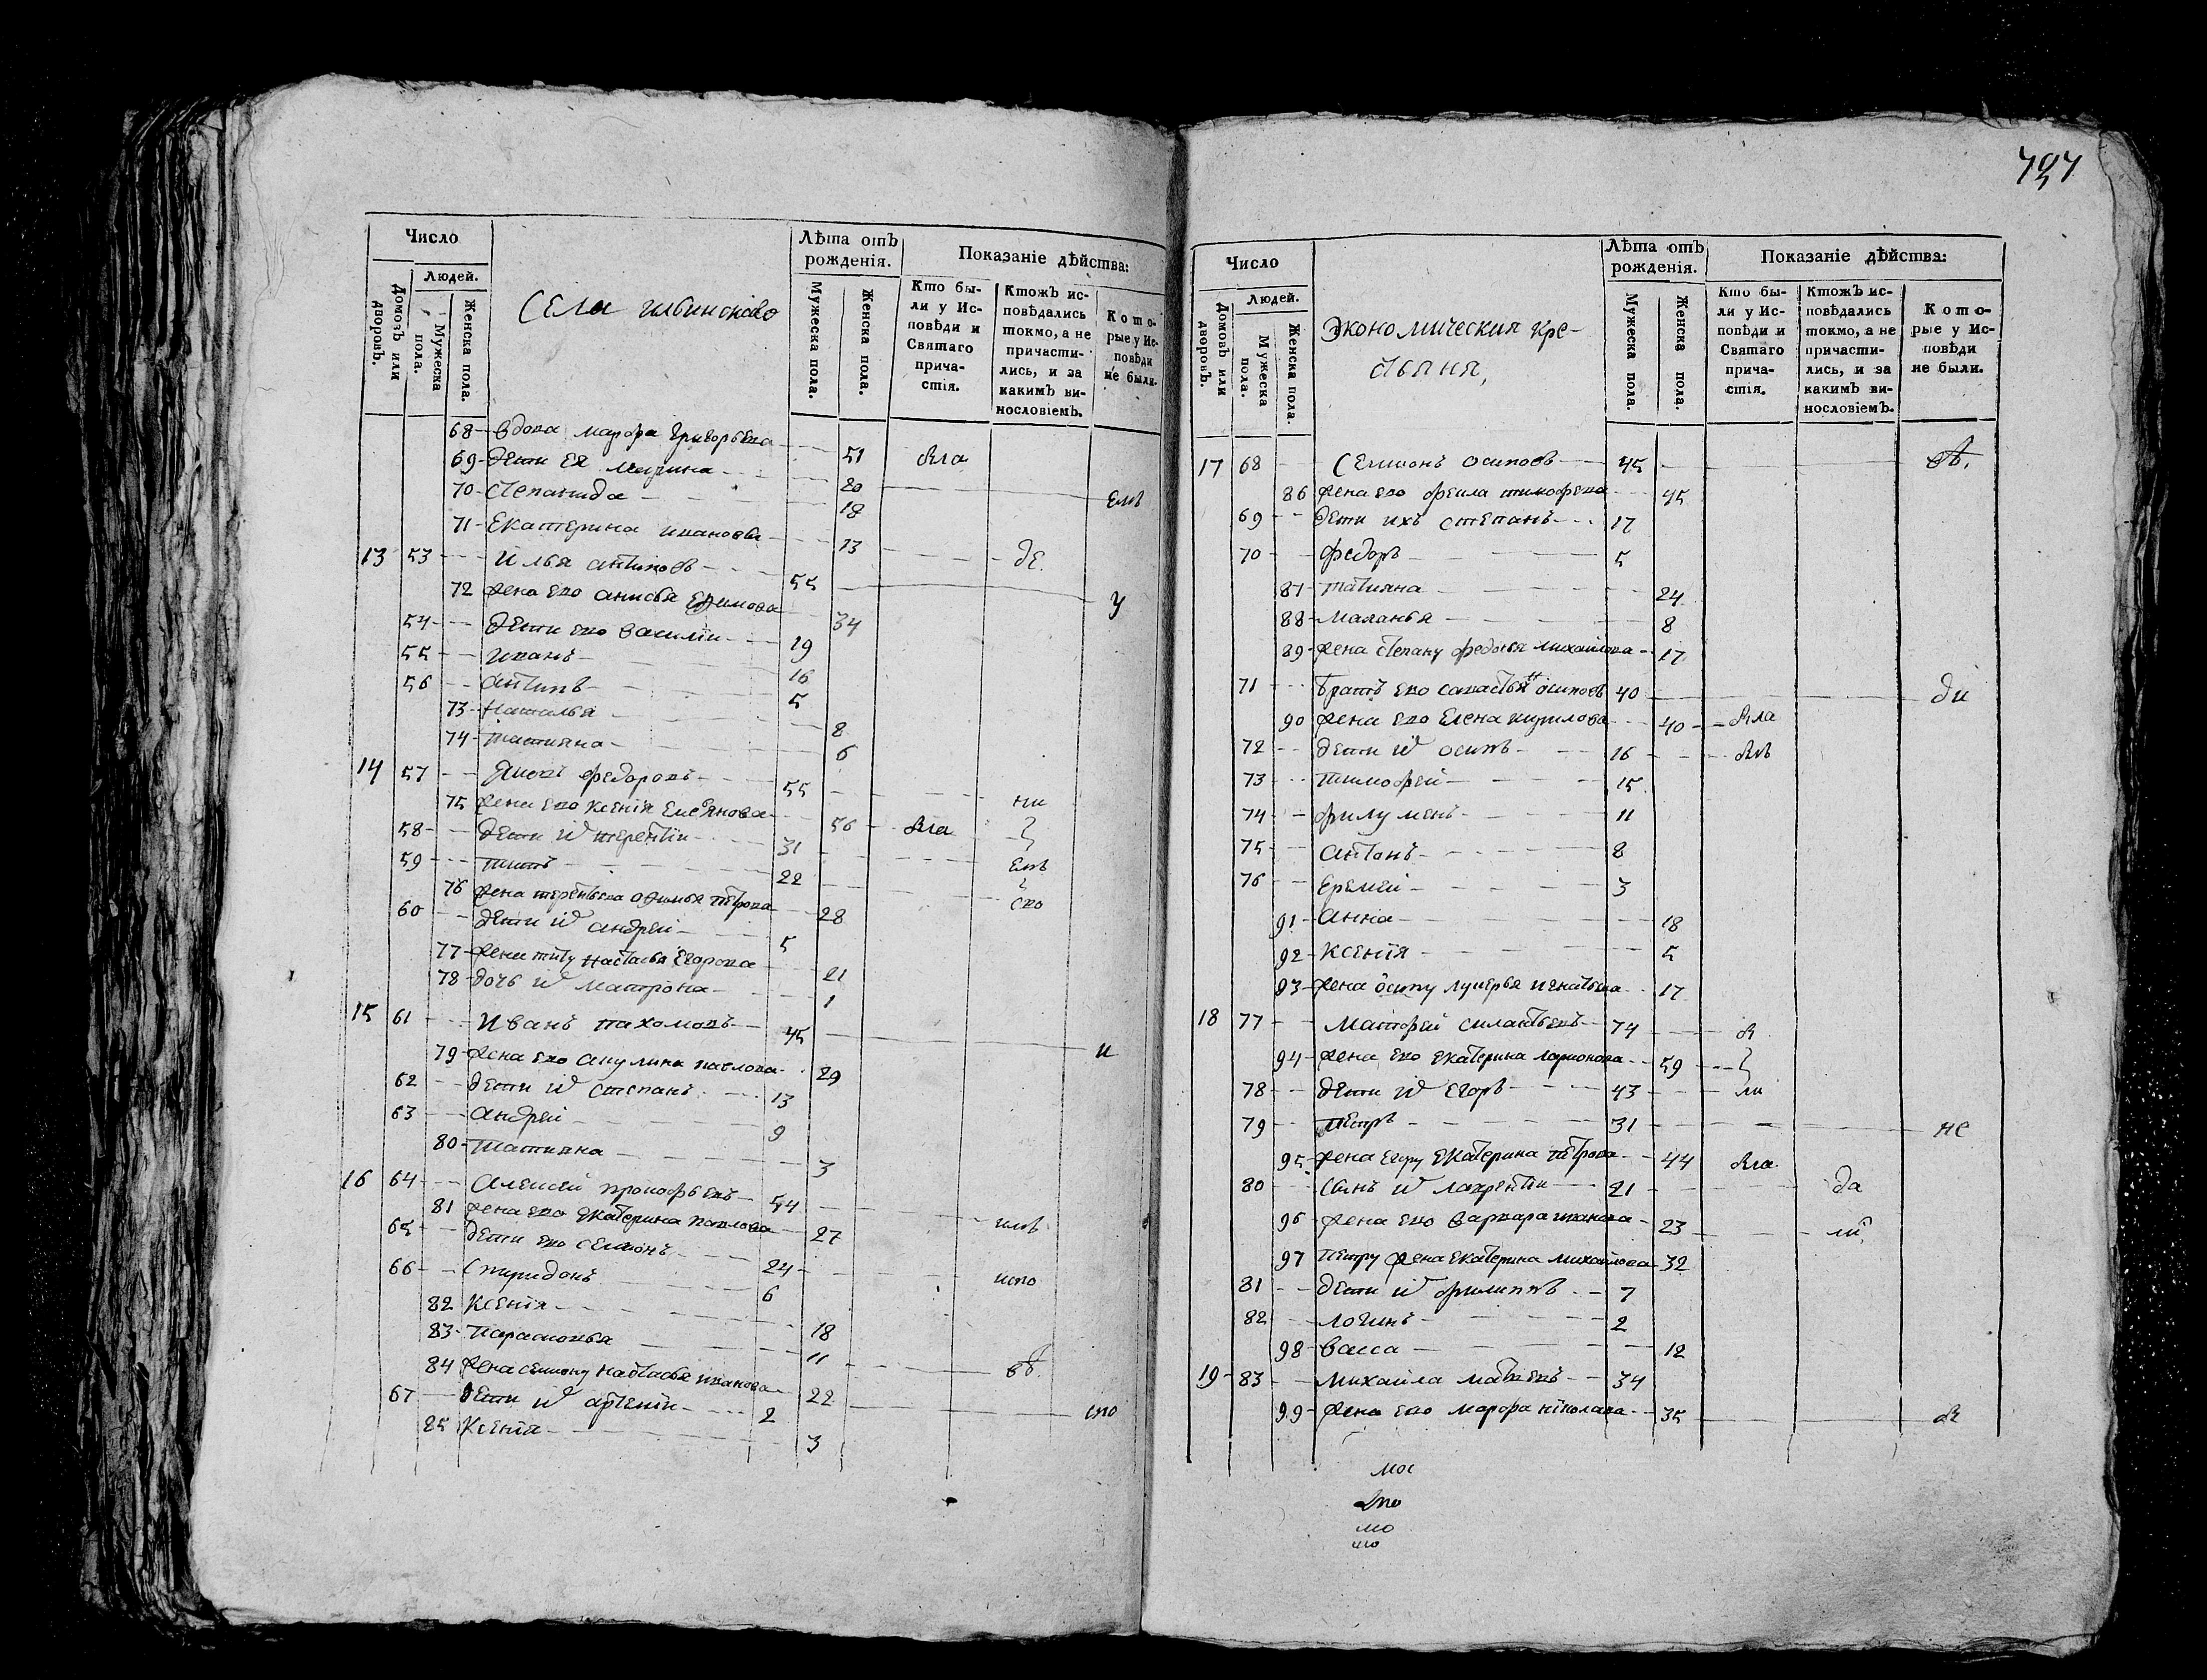 Число
Людей.
Домовъ или дворовъ.
Мужеска пола.
Женска пола.
Села ильинсково
Лѣта отъ рожденія.
Мужеска пола.
Женска пола.
Показаніе дѣйства:
Кто были у Исповѣди и Святаго причастія.
Ктожъ исповѣдались токмо, а не причастились, и за какимъ винословіемъ.
Которые у Исповѣди не были.
68 вдова марфа григорьева 51
69 дети ея 20
70 степанида 18
71 Екатерина иванова 13
13 53 Илья антипов 55
72 жена ево анисья Ефимова 34
54 дети ево василии 19
55 иванъ 16
56 антипъ 5
73 наталья 8
74 татияна 6
14 57 федоровъ 55
75 жена ево ксения Емельянова 56
58 дети их терентии 31
59 титъ 22
76 жена терентьева петрова 28
60 дети их андреи 5
77 жена титу настасья Егорова 21
78 дочь их матрона 1
15 61 Иванъ пахомовъ 45
79 жена ево акулина павлова 29
62 дети их степанъ 13
63 андреи 9
80 татияна 3
16 64 Алексеи прокофьевъ 54
81 жена ево Екатерина павлова 27
65 дети ево семионъ 24
66 спиридонъ 6
82 Ксения 18
83 парасковья 11
84 жена семиону настасья иванова 22
67 дети их 2
85 Ксения 3
797
Число
Людей.
Домовъ или дворовъ.
Мужеска пола.
Женска пола.
Экономическия кре-
стьяня,
Лѣта отъ рожденія.
Мужеска пола.
Женска пола.
Показаніе дѣйства:
Кто были у Исповѣди и Святаго причастія.
Ктожъ исповѣдались токмо, а не причастились, и за какимъ винословіемъ.
Которые у Исповѣди не были.
17 68 Семионъ осипов 45
86 жена ево фекла тимофева 45
69 дети ихъ степанъ 17
70 федоръ 5
87 татияна 24
88 маланья 8
89 жена степану федосья михаилова 17
71 братъ ево савастьян осипов 40 ди
90 жена ево Елена кирилова 40
72 дети их осипъ 16
73 тимофеи 15
74 филимонъ 11
75 антонъ 8
76 Еремеи 3
91 анна 18
92 ксения 5
93 жена осипу лукерья игнатьева 17
18 77 Матфеи силантьевъ 74
94 жена ево екатерина ларионова 59
78 дети их егоръ 43 ли
79 петръ 31 не
95 жена егору екатерина петрова 44
80 сынъ их лаврентии 21 да
96 жена ево варвара иванова 23 ли
97 петру жена екатерина михаилова 32
81 дети их филиппъ 7
82 логинъ 2
98 васса 12
19 83 михаила матвеевъ 34
99 жена ево марфа николаева 35